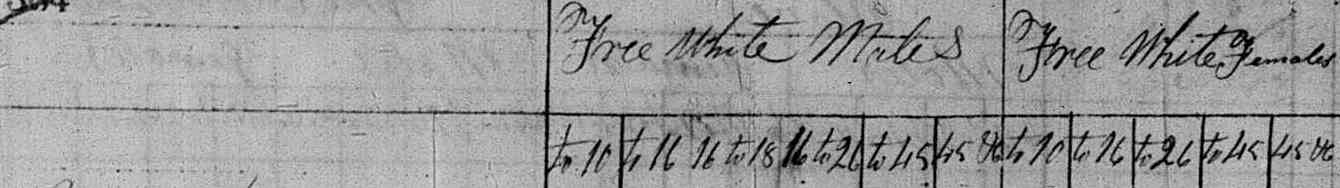 Free White Males Free White Females
to 10 to 16 16 to 18 16 to 26 to 45 45 &c to 10 to 16 to 26 to 45 45 &c